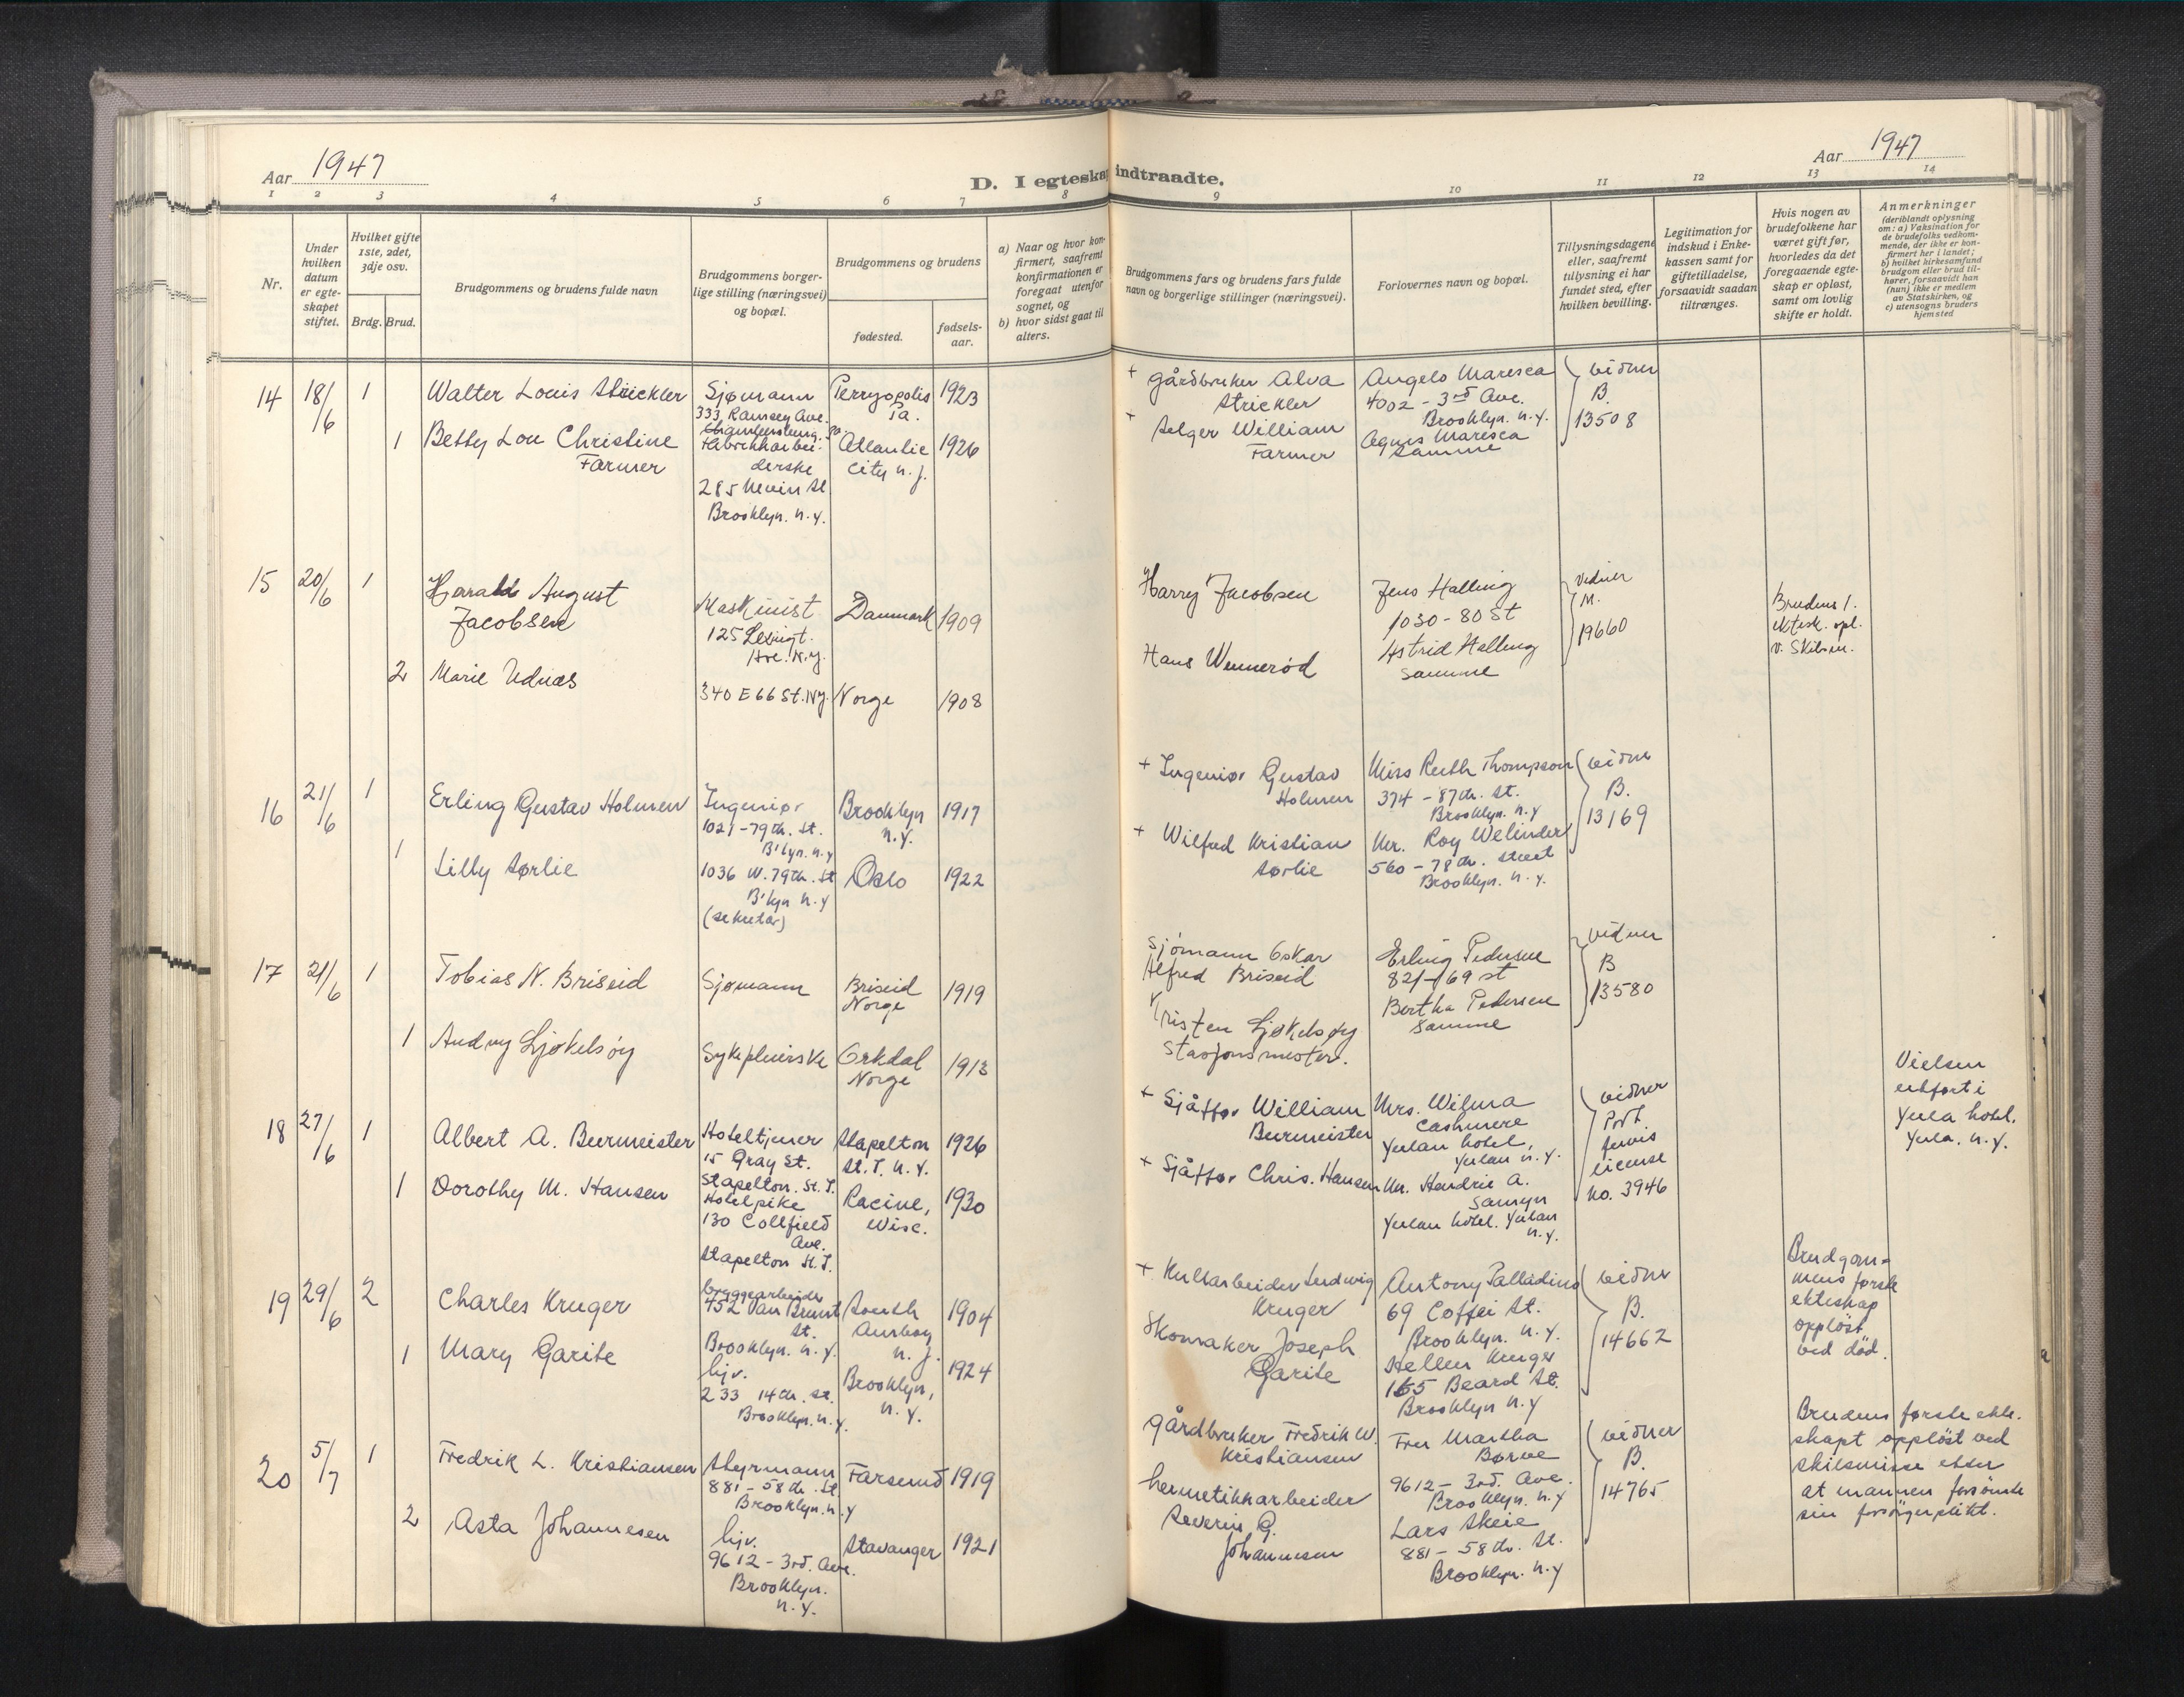 Aar 1947
D. I egteskap indtraadte.
Aar 1947
1 2 3 4 5 6 7 8 9 10 11 12 13 14
Nr.
Under hvilken datum er egteskapet stiftet.
Hvilket gifte 1ste, 2det, 3dje osv.
Brdg. Brud.
Brudgommens og brudens fulde navn
Brudgommens borgerlige stilling (næringsvei) og bopæl.
Brudgommens og brudens
fødested.
fødselsaar.
a) Naar og hvor konfirmert, saafremt konfirmationen er foregaat utenfor sognet, og
b) hvor sidst gaat til alters.
Brudgommens fars og brudens fars fulde navn og borgerlige stillinger (næringsvei).
Forlovernes navn og bopæl.
Tillysningsdagene eller, saafremt tillysning ei har fundet sted, efter hvilken bevilling.
Legitimation for indskud i Enkekassen samt for giftetilladelse, forsaavidt saadan tiltrænges.
Hvis nogen av brudefolkene har været gift før, hvorledes da det foregaaende egteskap er opløst, samt om lovlig skifte er holdt.
Anmerkninger
(deriblandt oplysning om: a) Vaksination for de brudefolks vedkommende, der ikke er konfirmert her i landet; b) hvilket kirkesamfund brudgom eller brud tilhører, forsaavidt han (hun) ikke er medlem av Statskirken, og c) utensogns bruders hjemsted
14 18/6 1 Walter Louis Strickler
Sjømann
333 Ramsey Ave.
Chambersburg. Pa.
Perryopolis
Pa.
1923
1 Betty Lou Christine
Farmer
Fabrikkarbeiderske
285 Nevin St
Brooklyn. N.Y.
Atlantic
City N.J.
1926
+ gårdbruker Alva
Strickler
+ Selger William
Farmer
Angelo Maresca
4002 - 3rd Ave.
Brooklyn. N.Y.
Agnes Maresca
Samme
vidner
B.
13508
15 20/6 1 Harald August
Jacobsen
Maskinist
125 Lexingt.
Ave. N.Y.
Danmark
1909
2 Marie Udnæs
340 E 66 St. NY.
Norge
1908
Harry Jacobsen
Hans Wennerød
Jens Halling
1030 - 80 St
Astrid Halling
samme
vidner
M.
19660
Brudens 1.
ektesk. opl.
v. Skilsm.
16 21/6 1 Erling Gustav Holmen
Ingeniør
1021 - 79th. St.
B'lyn. N.Y
Brooklyn
N.Y.
1917
1 Lilly Sørlie
1036 W. 79th. St
B'lyn N.Y
(sekretær)
Oslo
1922
+ Ingeniør Gustav
Holmen
+ Wilfred Kristian
Sørlie
Miss Ruth Thompson
374 - 87th. St.
Brooklyn. N.Y
Mr. Roy Welinder
560 - 78th. street
Brooklyn. N.Y.
vidner
B.
13169
17 21/6 1 Tobias N. Briseid
Sjømann
Briseid
Norge
1919
1 Audny Ljøkelsøy
Sykepleierske
Orkdal
Norge
1913
Sjømann Oskar
Alfred Briseid
Kristen Ljøkelsøy
Stasjonsmester.
Erling Pedersen
821 - 69 st
Bertha Pedersen
samme
vidner
B
13580
18 27/6 1 Albert A. Burmeister
Hoteltjener
15 Gray St.
Stapelton. St. I.
Stapelton
St. I. N.Y.
1926
1 Dorothy M. Hansen
Hotelpike
130 Collfield
Ave.
Stapelton St. I.
Racine,
Wisc.
1930
+ Sjåffør William
Burmeister
+ Sjåffør Chris. Hansen
Mrs. Wilma
Cashmere
Yulan hotel,
Yulan N.Y.
Mr. Hendric A.
Samyn
Yulan hotel. Yulan
N.Y.
vidner
Port
Jervis
license
No. 3946
Vielsen
utført i
Yula hotel.
Yula. N.Y.
19 29/6 2 Charles Kruger
byggearbeider
452 Van Brunt
St.
Brooklyn. N.Y.
South
Amboy
N.J.
1904
1 Mary Garite
hjv.
233 14th. St.
Brooklyn. N.Y.
Brooklyn,
N.Y.
1924
+ Kullarbeider Ludwig
Kruger
Skomaker Joseph
Garite
Antony Palladino
69 Coffei St.
Brooklyn. N.Y.
Hellen Kruger
165 Beard St.
Brooklyn N.Y
vidner
B.
14662
Brudgommens første
ekteskap
oppløst
ved død.
20 5/7 1 Fredrik L. Kristiansen
Styrmann
881 - 58th. St.
Brooklyn. N.Y
Farsund
1919
2 Asta Johannesen
hjv.
9612 - 3rd. Ave.
Brooklyn.
N.Y.
Stavanger
1921
gårdbruker Fredrik W.
Kristiansen
hermetikkarbeider
Severin G.
Johannesen
Fru Martha
Børve
9612 - 3rd. Ave.
Brooklyn. N.Y
Lars Skeie
881 - 58th. St.
Brooklyn. N.Y
vidner
B.
14765
Brudens første ekteskapt oppløst ved
skilsmisse etter
at mannen forsømte
sin forsørgerplikt.